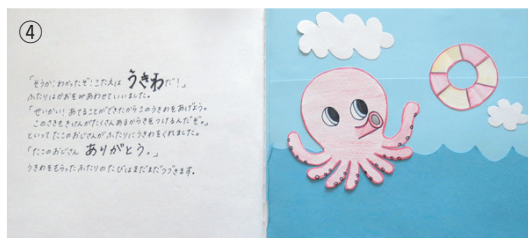 ④
「そうか!わかったぞ!こたえは うきわ だ!」
ふたりはかおをみあわせていいました。
「せいかい!あてることができたからこのうきわをあげよう。
このさきもきけんがたくさんあるからきをつけるんだぞ。」
といってたこのおじさんがふたりにうきわをくれました。
「たこのおじさん ありがとう。」
うきわをもらったふたりのたびはまだまだつづきます。